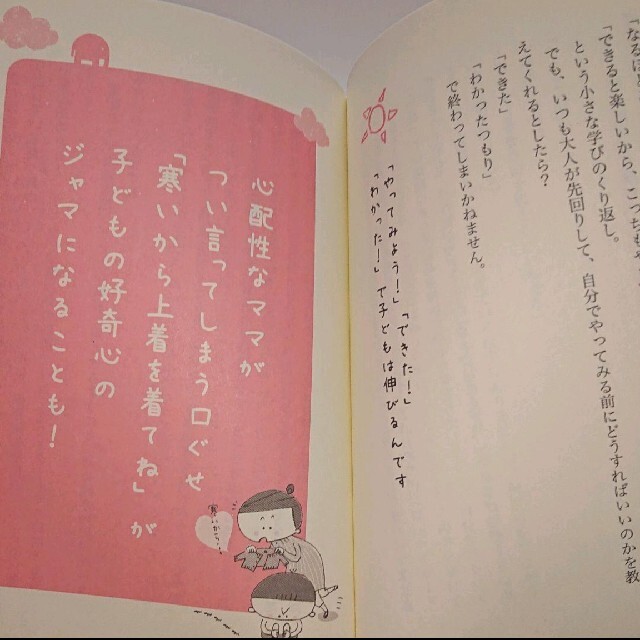 「なるほ
「できると楽しいから、こっちもや
という小さな学びのくり返し。
でも、いつも大人が先回りして、自分でやってみる前にどうすればいいのかを教
えてくれるとしたら?
「できた」
「わかったつもり」
で終わってしまいかねません。
「やってみよう!」「できた!」
「わかった!」で子どもは伸びるんです
心配性なママが
つい言ってしまう口ぐせ
「寒いから上着を着てね」が
子どもの好奇心の
ジャマになることも!
寒いから…